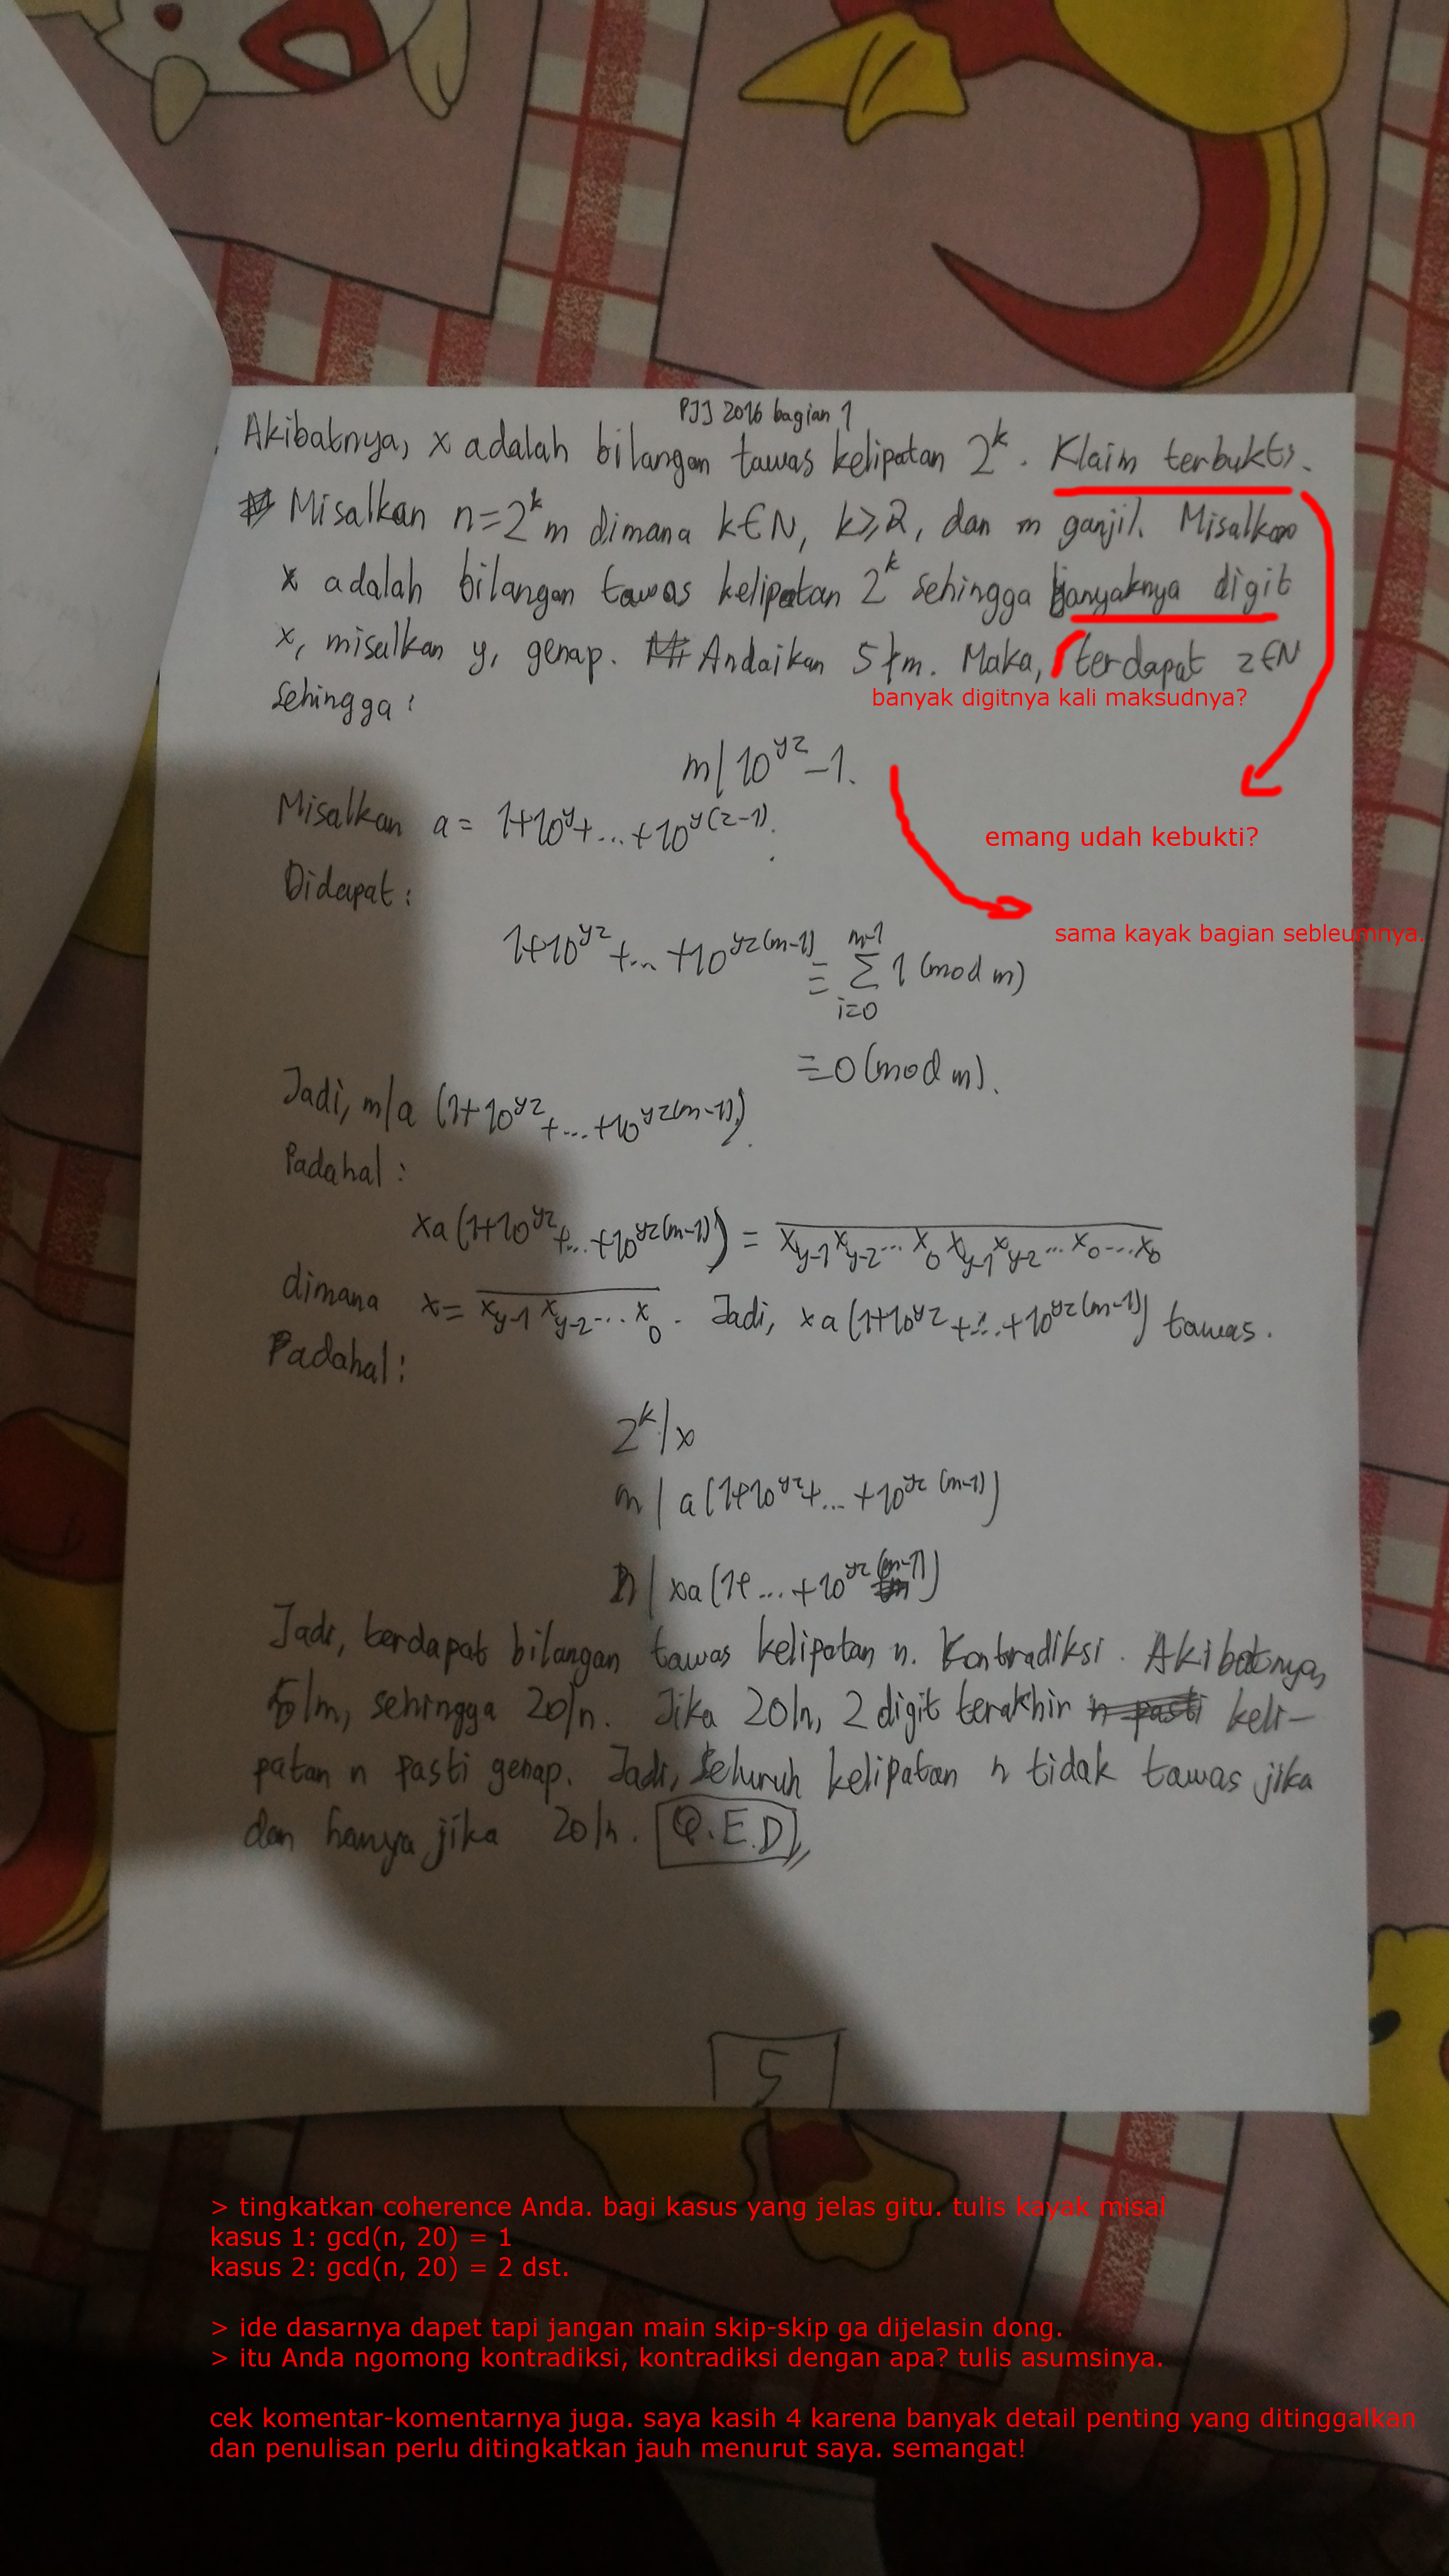 PJJ 2016 bagian 1
Akibatnya, x adalah bilangan tawas kelipatan 2^k. Klaim terbukti.
Misalkan n=2^k m dimana k∈N, k≥2, dan m ganjil. Misalkan
x adalah bilangan tawas kelipatan 2^k sehingga banyaknya digit
x, misalkan y, genap. Andaikan 5∤m. Maka, terdapat z∈N
banyak digitnya kali maksudnya?
sehingga:
m|10^{yz}-1.
Misalkan a = 1+10^y+...+10^{y(z-1)}.
emang udah kebukti?
Didapat:
sama kayak bagian sebleumnya.
1+10^{yz}+...+10^{yz(m-1)} ≡ \sum_{i=0}^{m-1} 1 (mod m)
≡0 (mod m).
Jadi, m|a (1+10^{yz}+...+10^{yz(m-1)}).
Padahal:
xa(1+10^{yz}+...+10^{yz(m-1)}) = \overline{x_{y-1}x_{y-2}...x_0x_{y-1}x_{y-2}...x_0...x_0}
dimana x= \overline{x_{y-1}x_{y-2}...x_0}. Jadi, xa(1+10^{yz}+...+10^{yz(m-1)}) tawas.
Padahal:
2^k|x
m | a(1+10^{yz}+...+10^{yz(m-1)})
n | xa(1+...+10^{yz(m-1)})
Jadi, terdapat bilangan tawas kelipatan n. Kontradiksi. Akibatnya,
5|m, sehingga 20|n. Jika 20|n, 2 digit terakhir keli-
patan n pasti genap. Jadi, seluruh kelipatan n tidak tawas jika
dan hanya jika 20|n. Q.E.D
5
> tingkatkan coherence Anda. bagi kasus yang jelas gitu. tulis kayak misal
kasus 1: gcd(n, 20) = 1
kasus 2: gcd(n, 20) = 2 dst.
> ide dasarnya dapet tapi jangan main skip-skip ga dijelasin dong.
> itu Anda ngomong kontradiksi, kontradiksi dengan apa? tulis asumsinya.
cek komentar-komentarnya juga. saya kasih 4 karena banyak detail penting yang ditinggalkan
dan penulisan perlu ditingkatkan jauh menurut saya. semangat!